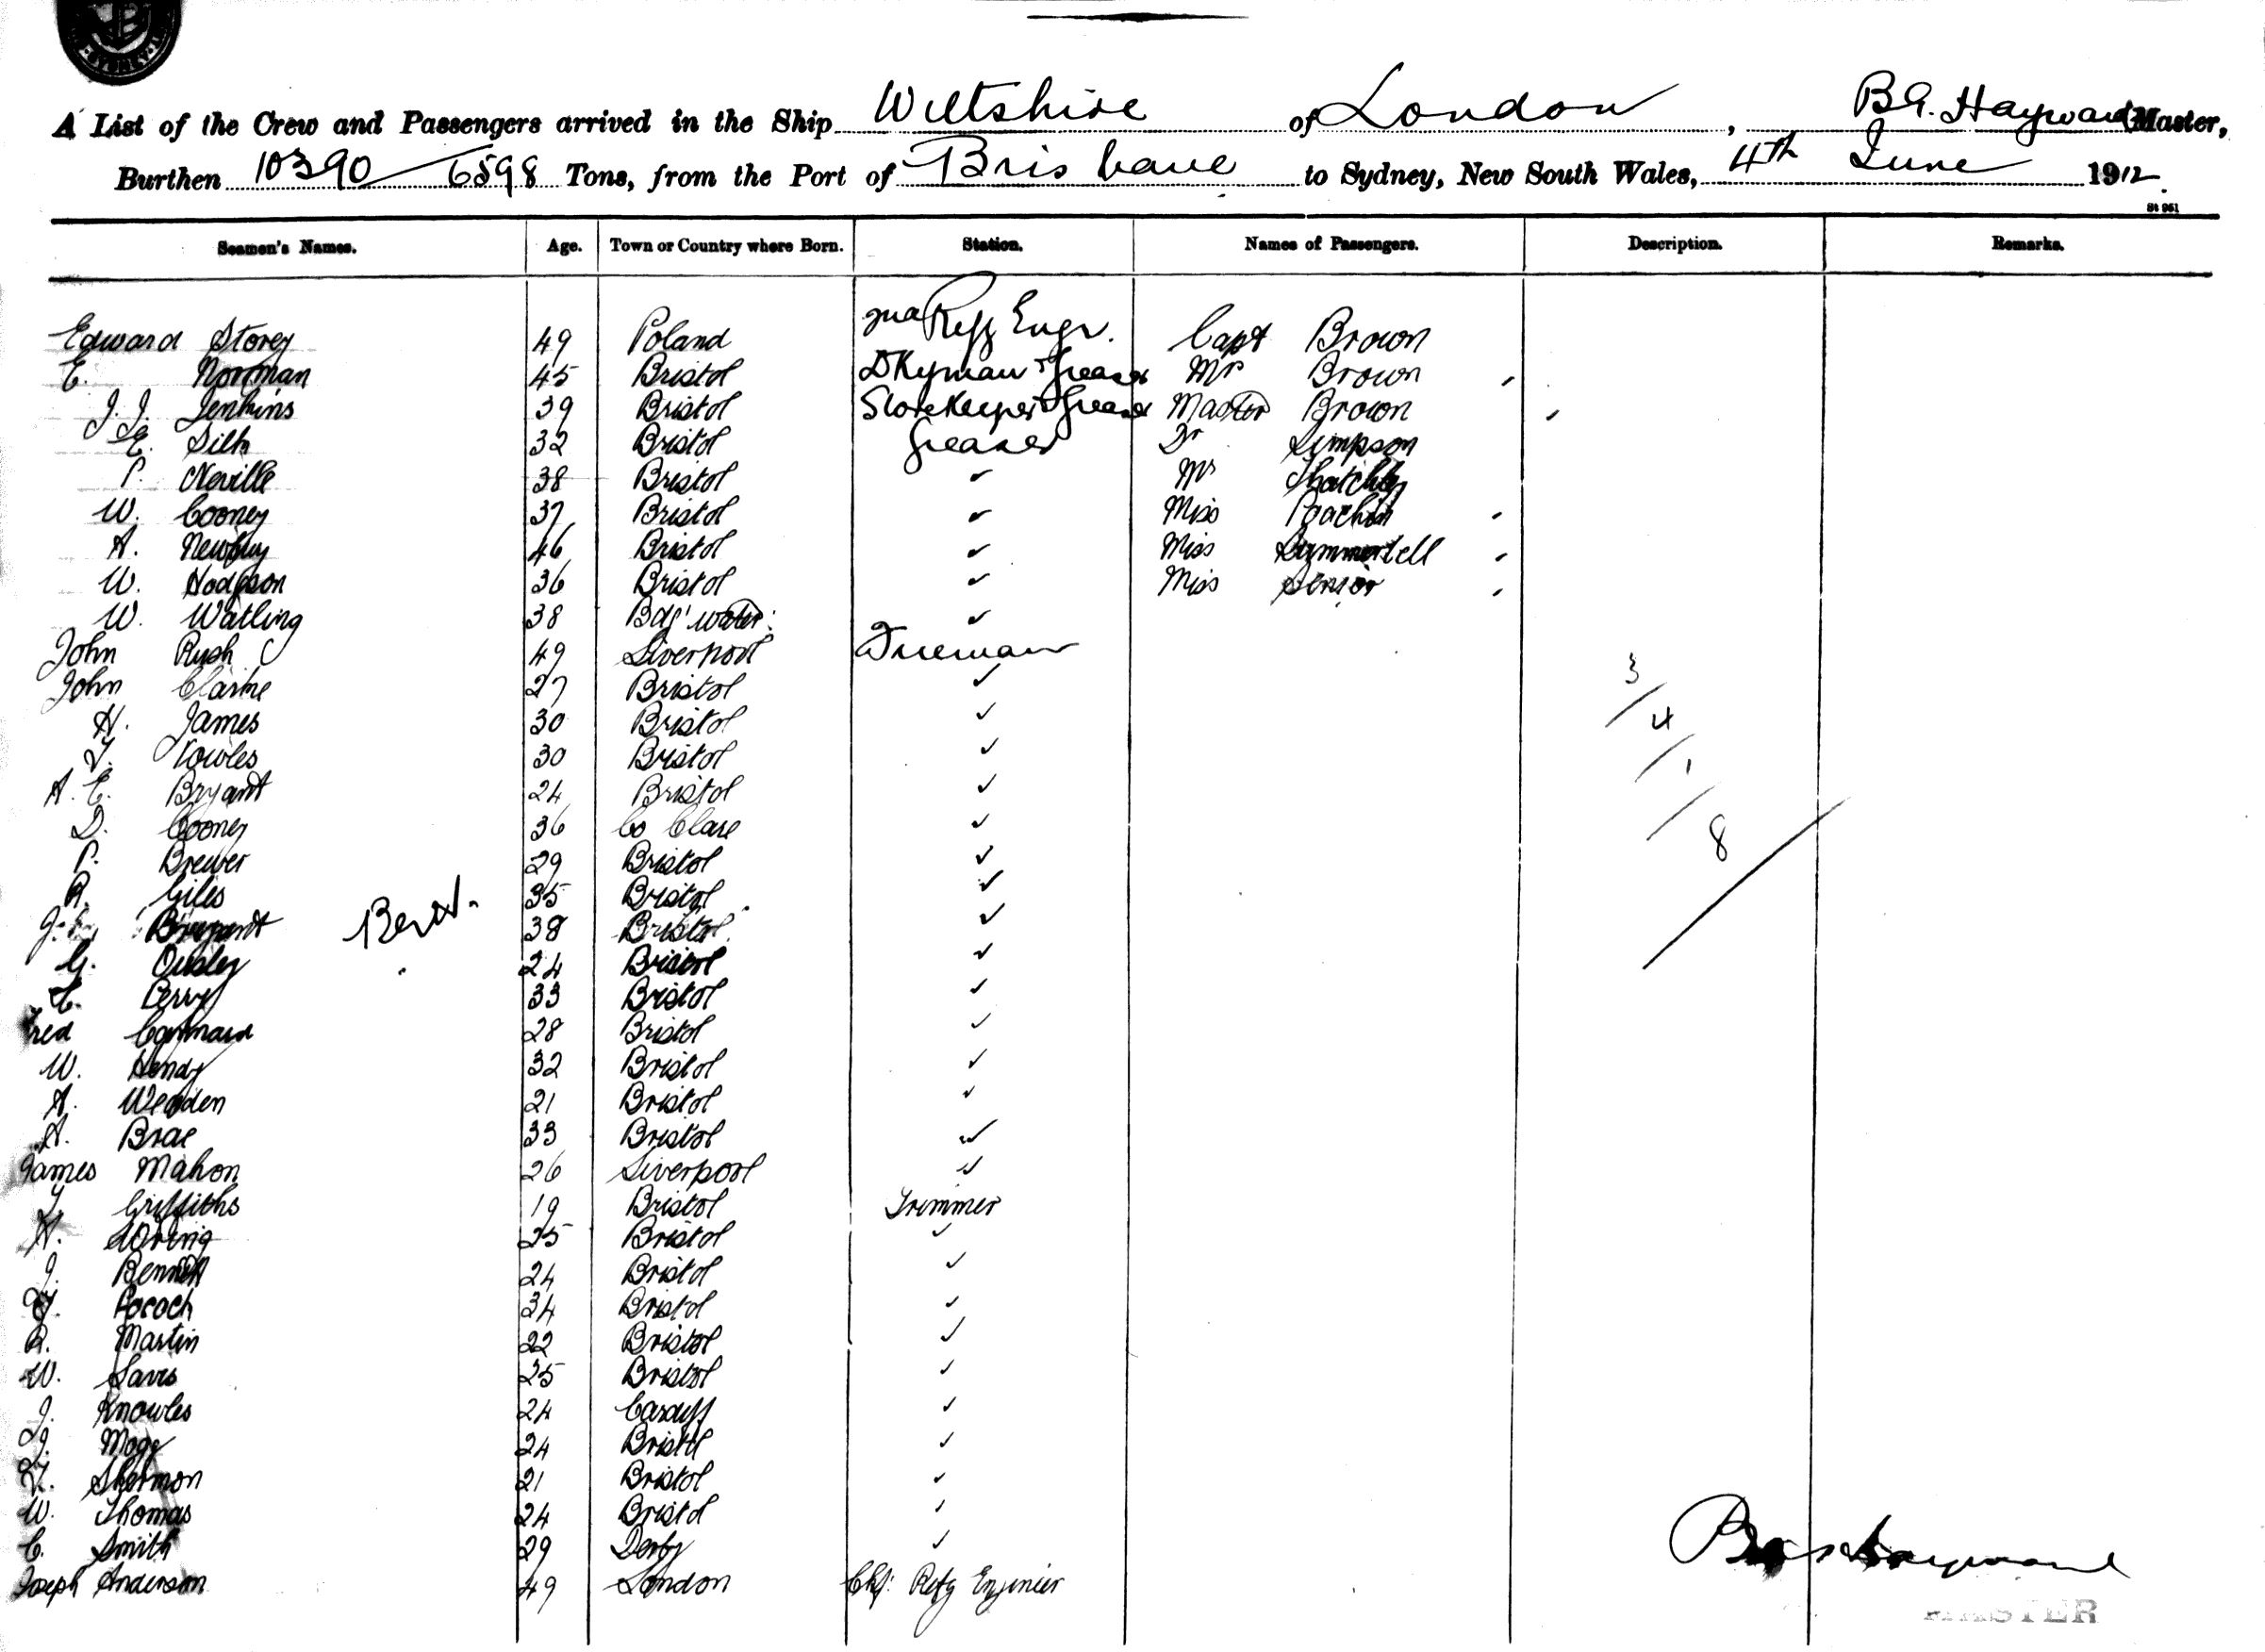 SYDNEY
A List of the Crew and Passengers arrived in the Ship Wiltshire of London, B.G. Hayward Master,
Burthen 10390 / 6598 Tons, from the Port of Brisbane to Sydney, New South Wales, 4th June 1912.
St 961
Seamen's Names. Age. Town or Country where Born. Station. Names of Passengers. Description. Remarks.
Edward Storey 49 Poland 2nd Refg Engr. Capt Brown
E. Norman 45 Bristol DKeyman & Greaser Mrs Brown
J. J. Jenkins 39 Bristol Storekeeper & Greaser Master Brown
E. Silk 32 Bristol Greaser Dr Simpson
P. Neville 38 Bristol ✓ Mr
W. Cooney 37 Bristol ✓ Miss
A. Newbury 46 Bristol ✓ Miss Summerbell
W. Hodgson 36 Bristol ✓ Miss Senior
W. Watling 38 Bdg'water: ✓
John Rush 49 Liverpool Fireman
John Clarke 27 Bristol ✓ 3
H. James 30 Bristol ✓ / 4
T. Vowles 30 Bristol ✓ / 1
A. E. Bryant 24 Bristol ✓
D. Cooney 36 Co Clare ✓ / 8
P. Brewer 29 Bristol ✓
R. Giles 35 Bristol ✓
Bryant 38 Bristol ✓
G. Ousley 24 Bristol ✓
C. Perry 33 Bristol ✓
Fred 28 Bristol ✓
W. Hendy 32 Bristol ✓
A. Weaden 21 Bristol ✓
A. Brae 33 Bristol ✓
James Mahon 26 Liverpool ✓
T. Griffiths 19 Bristol Trimmer
H. Loring 25 Bristol ✓
J. Bennett 24 Bristol ✓
Pocock 34 Bristol ✓
R. Martin 22 Bristol ✓
W. Savis 25 Bristol ✓
J. Knowles 24 Cardiff ✓
J. Mogg 24 Bristol ✓
T. Shermon 21 Bristol ✓
W. Thomas 24 Bristol ✓
C. Smith 29 Derby ✓
Joseph Anderson 49 London Chf: Refg Engineer
Hayward
MASTER